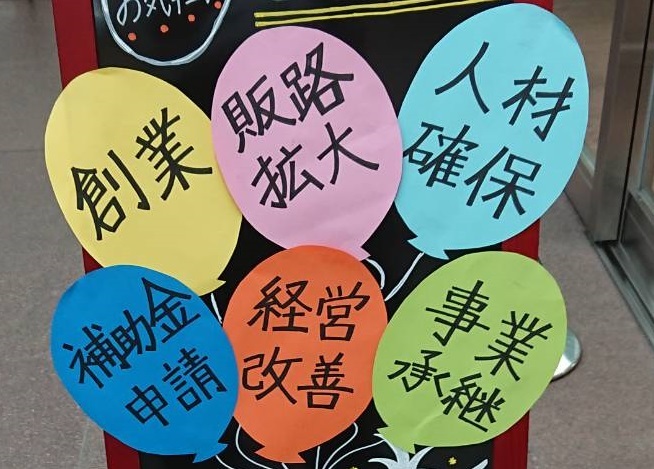 お気軽に
創業
販路
拡大
人材
確保
補助金
申請
経営
改善
事業
承継